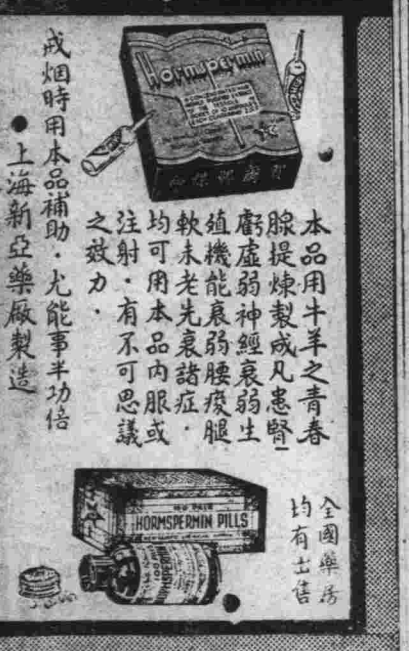 Hormspermin
本品用牛羊之青春
腺提煉製成凡患腎
虧虛弱神經衰弱生
殖機能衰弱腰痠腿
軟未老先衰諸症．
均可用本品內服或
注射．有不可思議
之效力．
戒烟時用本品補助．尤能事半功倍
●上海新亞藥廠製造
全國藥房
均有出售
HORMSPERMIN PILLS